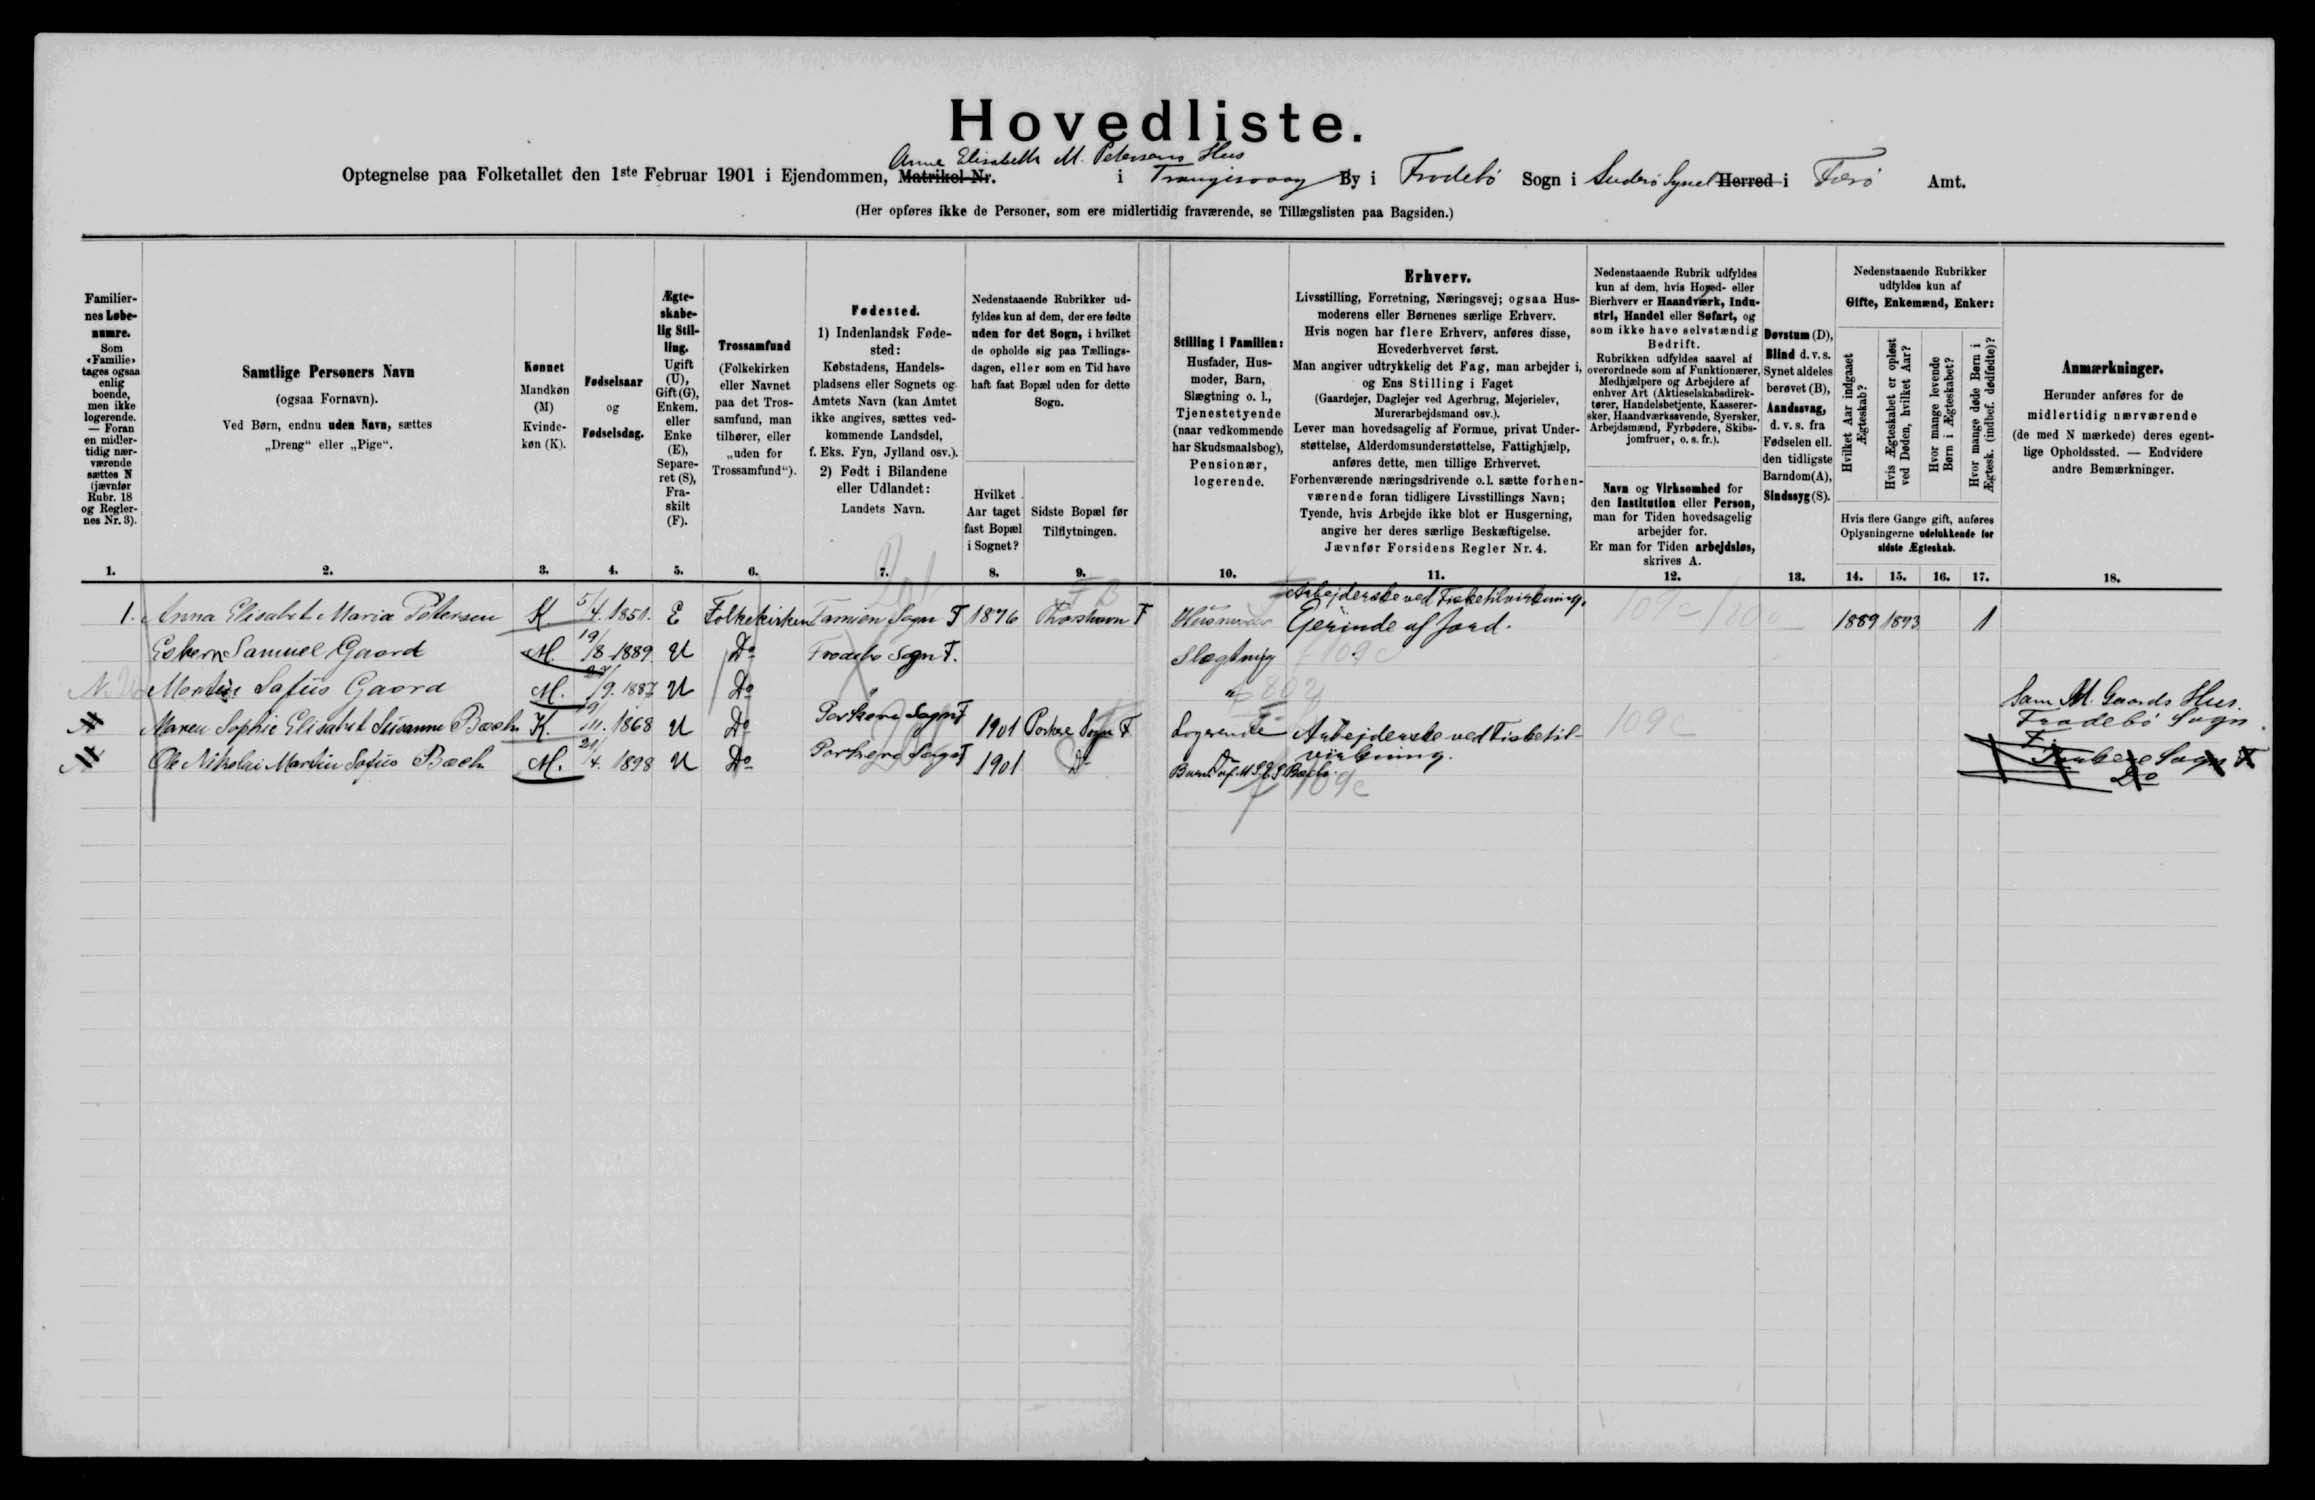 Hovedliste.
Anne Elisabeth M. Petersens Hus
Optegnelse paa Folketallet den 1ste Februar 1901 i Ejendommen, Matrikel Nr. i Trangisvaag By i Frodebø Sogn i Suderø Syssel Herred i Færø Amt.
(Her opføres ikke de Personer, som ere midlertidig fraværende, se Tillægslisten paa Bagsiden.)
Familier-
nes Løbe-
numre.
Som
«Familie»
tages ogsaa
enlig
boende,
men ikke
logerende.
— Foran
en midler-
tidig nær-
værende
sættes N
(jævnfør
Rubr. 18
og Regler-
nes Nr. 3).
1.
Samtlige Personers Navn
(ogsaa Fornavn).
Ved Børn, endnu uden Navn, sættes
„Dreng“ eller „Pige“.
2.
Kønnet
Mandkøn
(M)
Kvinde-
køn (K).
3.
Fødselsaar
og
Fødselsdag.
4.
Ægte-
skabe-
lig Stil-
ling.
Ugift
(U),
Gift (G),
Enkem.
eller
Enke
(E),
Separe-
ret (S),
Fra-
skilt
(F).
5.
Trossamfund
(Folkekirken
eller Navnet
paa det Tros-
samfund, man
tilhører, eller
„uden for
Trossamfund“).
6.
Fødested.
1) Indenlandsk Føde-
sted:
Købstadens, Handels-
pladsens eller Sognets og
Amtets Navn (kan Amtet
ikke angives, sættes ved-
kommende Landsdel,
f. Eks. Fyn, Jylland osv.).
2) Født i Bilandene
eller Udlandet:
Landets Navn.
7.
Nedenstaaende Rubrikker ud-
fyldes kun af dem, der ere fødte
uden for det Sogn, i hvilket
de opholde sig paa Tællings-
dagen, eller som en Tid have
haft fast Bopæl uden for dette
Sogn.
Hvilket
Aar taget
fast Bopæl
i Sognet?
8.
Sidste Bopæl før
Tilflytningen.
9.
Stilling i Familien:
Husfader, Hus-
moder, Barn,
Slægtning o. l.,
Tjenestetyende
(naar vedkommende
har Skudsmaalsbog),
Pensionær,
logerende.
10.
Erhverv.
Livsstilling, Forretning, Næringsvej; ogsaa Hus-
moderens eller Børnenes særlige Erhverv.
Hvis nogen har flere Erhverv, anføres disse,
Hovederhvervet først.
Man angiver udtrykkelig det Fag, man arbejder i,
og Ens Stilling i Faget
(Gaardejer, Daglejer ved Agerbrug, Mejerielev,
Murerarbejdsmand osv.).
Lever man hovedsagelig af Formue, privat Under-
støttelse, Alderdomsunderstøttelse, Fattighjælp,
anføres dette, men tillige Erhvervet.
Forhenværende næringsdrivende o.l. sætte forhen-
værende foran tidligere Livsstillings Navn;
Tyende, hvis Arbejde ikke blot er Husgerning,
angive her deres særlige Beskæftigelse.
Jævnfør Forsidens Regler Nr. 4.
11.
Nedenstaaende Rubrik udfyldes
kun af dem, hvis Hoved- eller
Bierhverv er Haandværk, Indu-
stri, Handel eller Søfart, og
som ikke have selvstændig
Bedrift.
Rubrikken udfyldes saavel af
overordnede som af Funktionærer,
Medhjælpere og Arbejdere af
enhver Art (Aktieselskabsdirek-
tører, Handelsbetjente, Kasserer-
sker, Haandværkssvende, Syersker,
Arbejdsmænd, Fyrbødere, Skibs-
jomfruer, o. s. fr.).
Navn og Virksomhed for
den Institution eller Person,
man for Tiden hovedsagelig
arbejder for.
Er man for Tiden arbejdsløs,
skrives A.
12.
Døvstum (D),
Blind d. v. s.
Synet aldeles
berøvet (B),
Aandssvag,
d. v. s. fra
Fødselen ell.
den tidligste
Barndom(A),
Sindssyg (S).
13.
Nedenstaaende Rubrikker
udfyldes kun af
Gifte, Enkemænd, Enker:
Hvilket Aar indgaaet
Ægteskab?
Hvis Ægteskabet er opløst
ved Døden, hvilket Aar?
Hvor mange levende
Børn i Ægteskabet?
Hvor mange døde Børn i
Ægtesk. (indbef. dødfødte)?
Hvis flere Gange gift, anføres
Oplysningerne udelukkende for
sidste Ægteskab.
14. 15. 16. 17.
Anmærkninger.
Herunder anføres for de
midlertidig nærværende
(de med N mærkede) deres egent-
lige Opholdssted. — Endvidere
andre Bemærkninger.
18.
Arbejderske ved Fisketilvirkning.
1. Anna Elisabet Maria Petersen K. 5/4. 1851. E Folkekirken Famien Sogn F 1876 Thorshavn F Husmoder Gerinde af Jord. 109c 1889 1893 1
Esbern Samuel Gaard M. 19/8 1889 U Do Frodebø Sogn F. Slægtning 109c
N. Mortin Sofus Gaard M. 27/9. 1887 U Do " " Sam. M. Gaards Hus.
Frodebø Sogn
N Maren Sophie Elisabet Susanne Bæch K. 19/11. 1868 U Do Porkere Sogn F 1901 Porkere Sogn F Logerende Arbejderske ved Fisketil-
virkning. 109c
F.
N Ole Nikolai Martin Sofus Bæch M. 21/4. 1898 U Do Porkere Sogn F 1901 Do Barn af M.S.E.S. Bæch 109c
Porkere Sogn F
Do